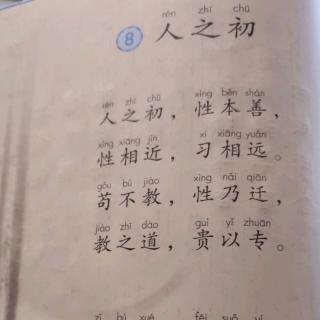 rén zhī chū
8 人之初
rén zhī chū xìng běn shàn
人之初，性本善，
xìng xiāng jìn xí xiāng yuǎn
性相近，习相远。
gǒu bú jiào xìng nǎi qiān
苟不教，性乃迁，
jiào zhī dào guì yǐ zhuān
教之道，贵以专。
zǐ bù xué fēi suǒ yí